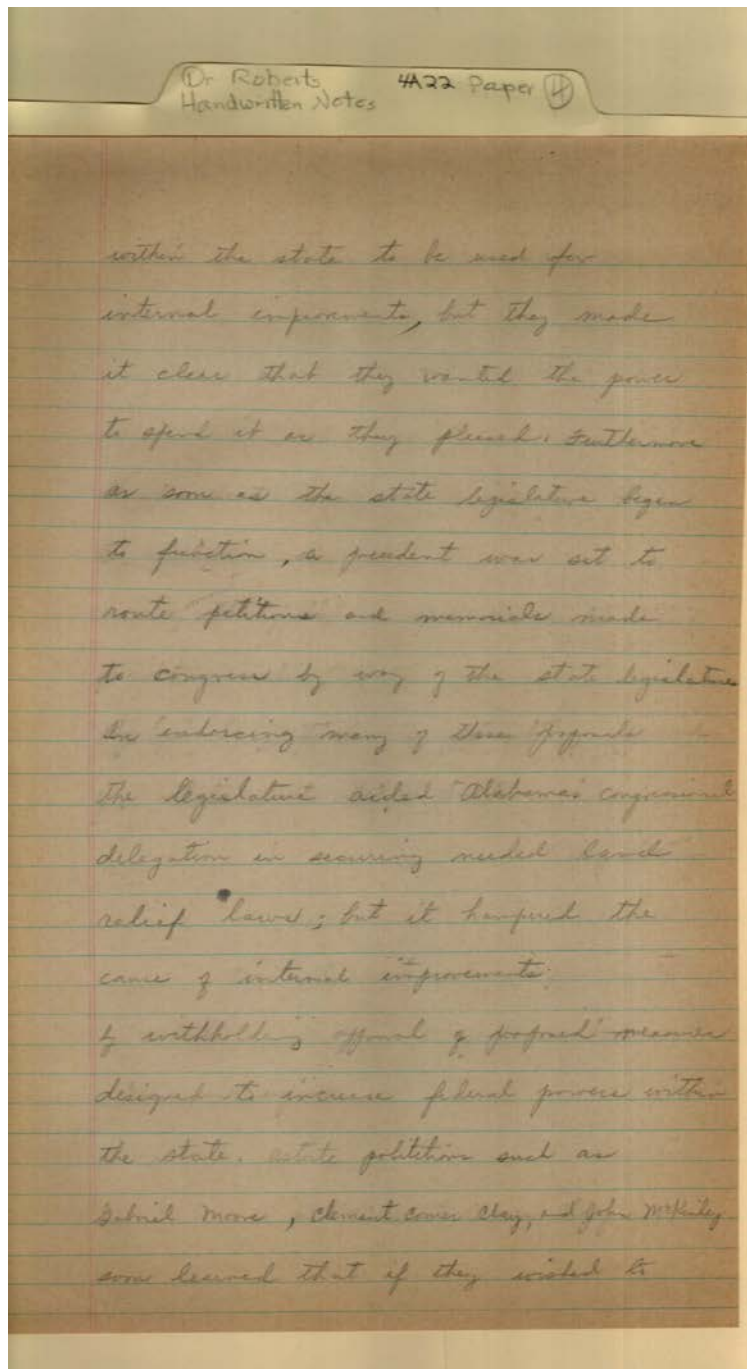 Dr Roberts 4A22 Paper 4
Handwritten Notes
within the state to be used for
internal improvements, but they made
it clear that they wanted the power
to spend it as they pleased. Furthermore
as soon as the state legislature began
to function, a precedent was set to
route petitions and memorials made
to congress by way of the state legislature
In endorcing many of these proposals
the legislature aided Alabama's congressional
delegation in securing needed land
relief laws; but it hampered the
cause of internal improvements
by withholding approval of proposed measures
designed to increase federal powers within
the state. astute politicians such as
Gabriel Moore, Clement Comer Clay, and John McKinley
soon learned that if they wished to